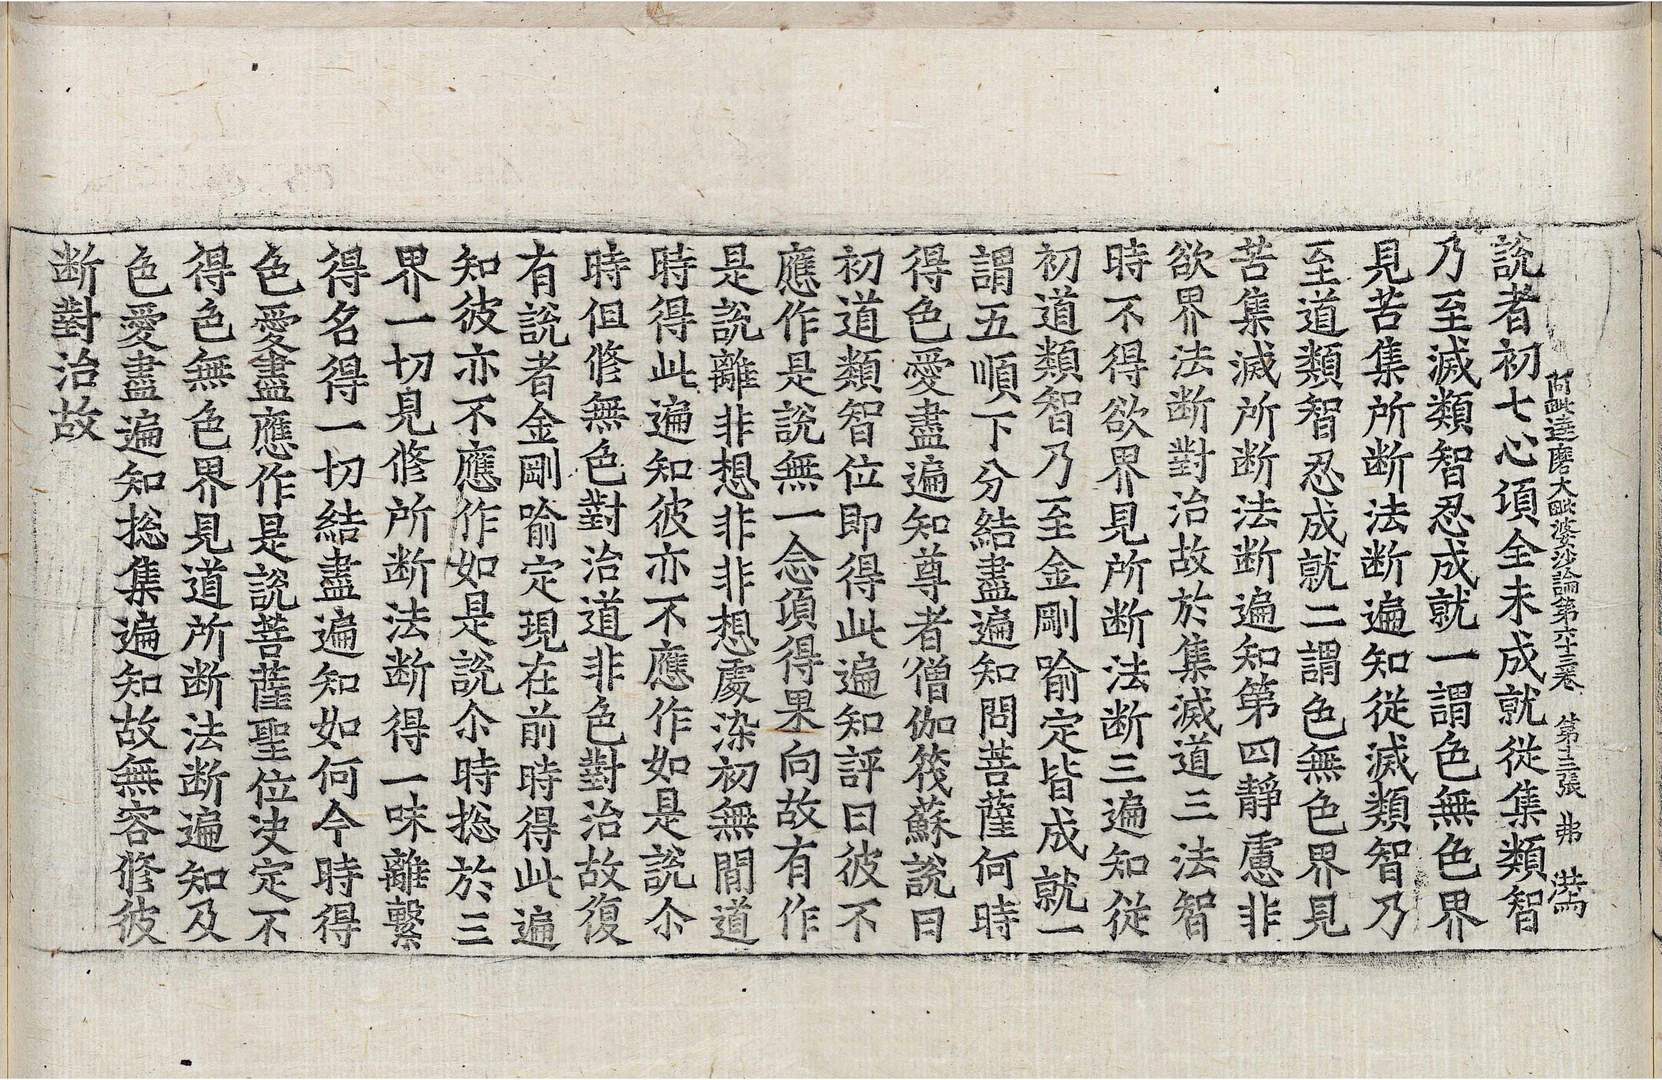 阿毗達磨大毗婆沙論第六十三卷 第十三張 弗
說者初七心頃全未成就從集類智
乃至滅類智忍成就一謂色無色界
見苦集所断法断遍知從滅類智乃
至道類智忍成就二謂色無色界見
苦集滅所断法断遍知第四靜慮非
欲界法断對治故於集滅道三法智
時不得欲界見所断法断三遍知從
初道類智乃至金剛喻定皆成就一
謂五順下分結盡遍知問菩薩何時
得色愛盡遍知尊者僧伽筏蘇說曰
初道類智位即得此遍知評曰彼不
應作是說無一念頃得果向故有作
是說離非想非非想處染初無間道
時得此遍知彼亦不應作如是說尒
時但修無色對治道非色對治故復
有說者金剛喻定現在前時得此遍
知彼亦不應作如是說尒時捴於三
界一切見修所断法断得一味離繫
得名得一切結盡遍知如何今時得
色愛盡應作是說菩薩聖位决定不
得色無色界見道所断法断遍知及
色愛盡遍知捴集遍知故無容修彼
断對治故